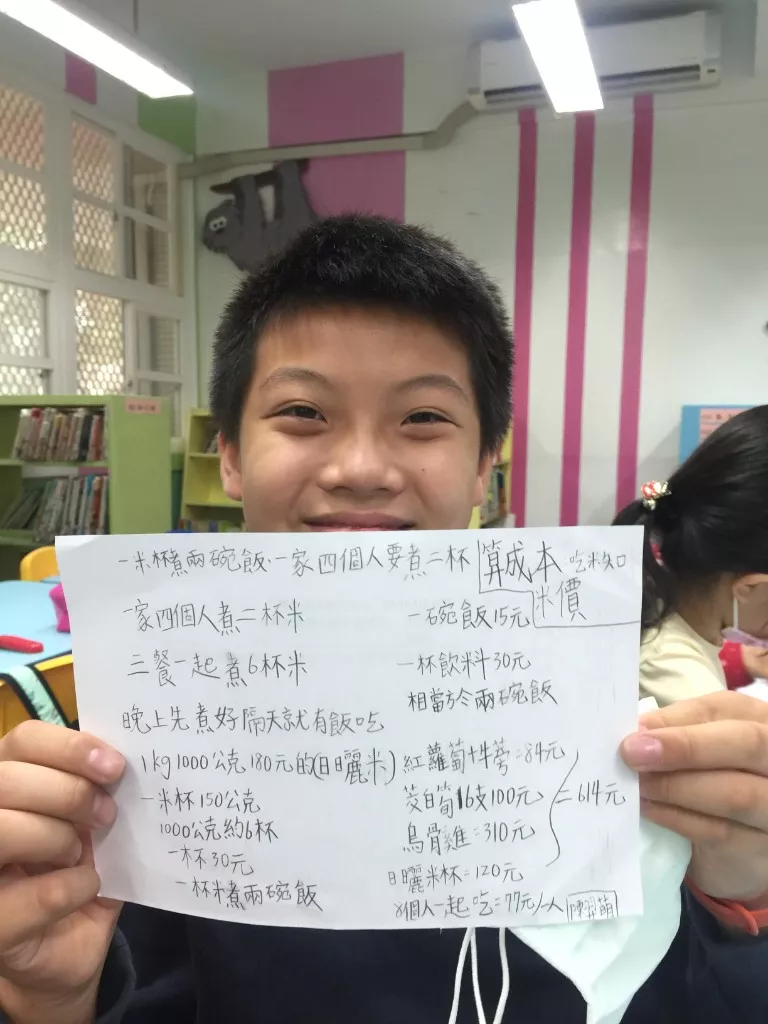 一米杯煮兩碗飯.一家四個人要煮二杯
算成本 吃米知
米價
一家四個人煮二杯米
三餐一起煮6杯米
晚上先煮好隔天就有飯吃
1kg 1000公克180元的(日曬米)
一米杯150公克
1000公克約6杯
一杯30元
一杯米煮兩碗飯
一碗飯15元
一杯飲料30元
相當於兩碗飯
紅蘿蔔+牛蒡=84元
茭白筍16支100元
烏骨雞=310元
=614元
日曬米杯=120元
8個人一起吃=77元/人